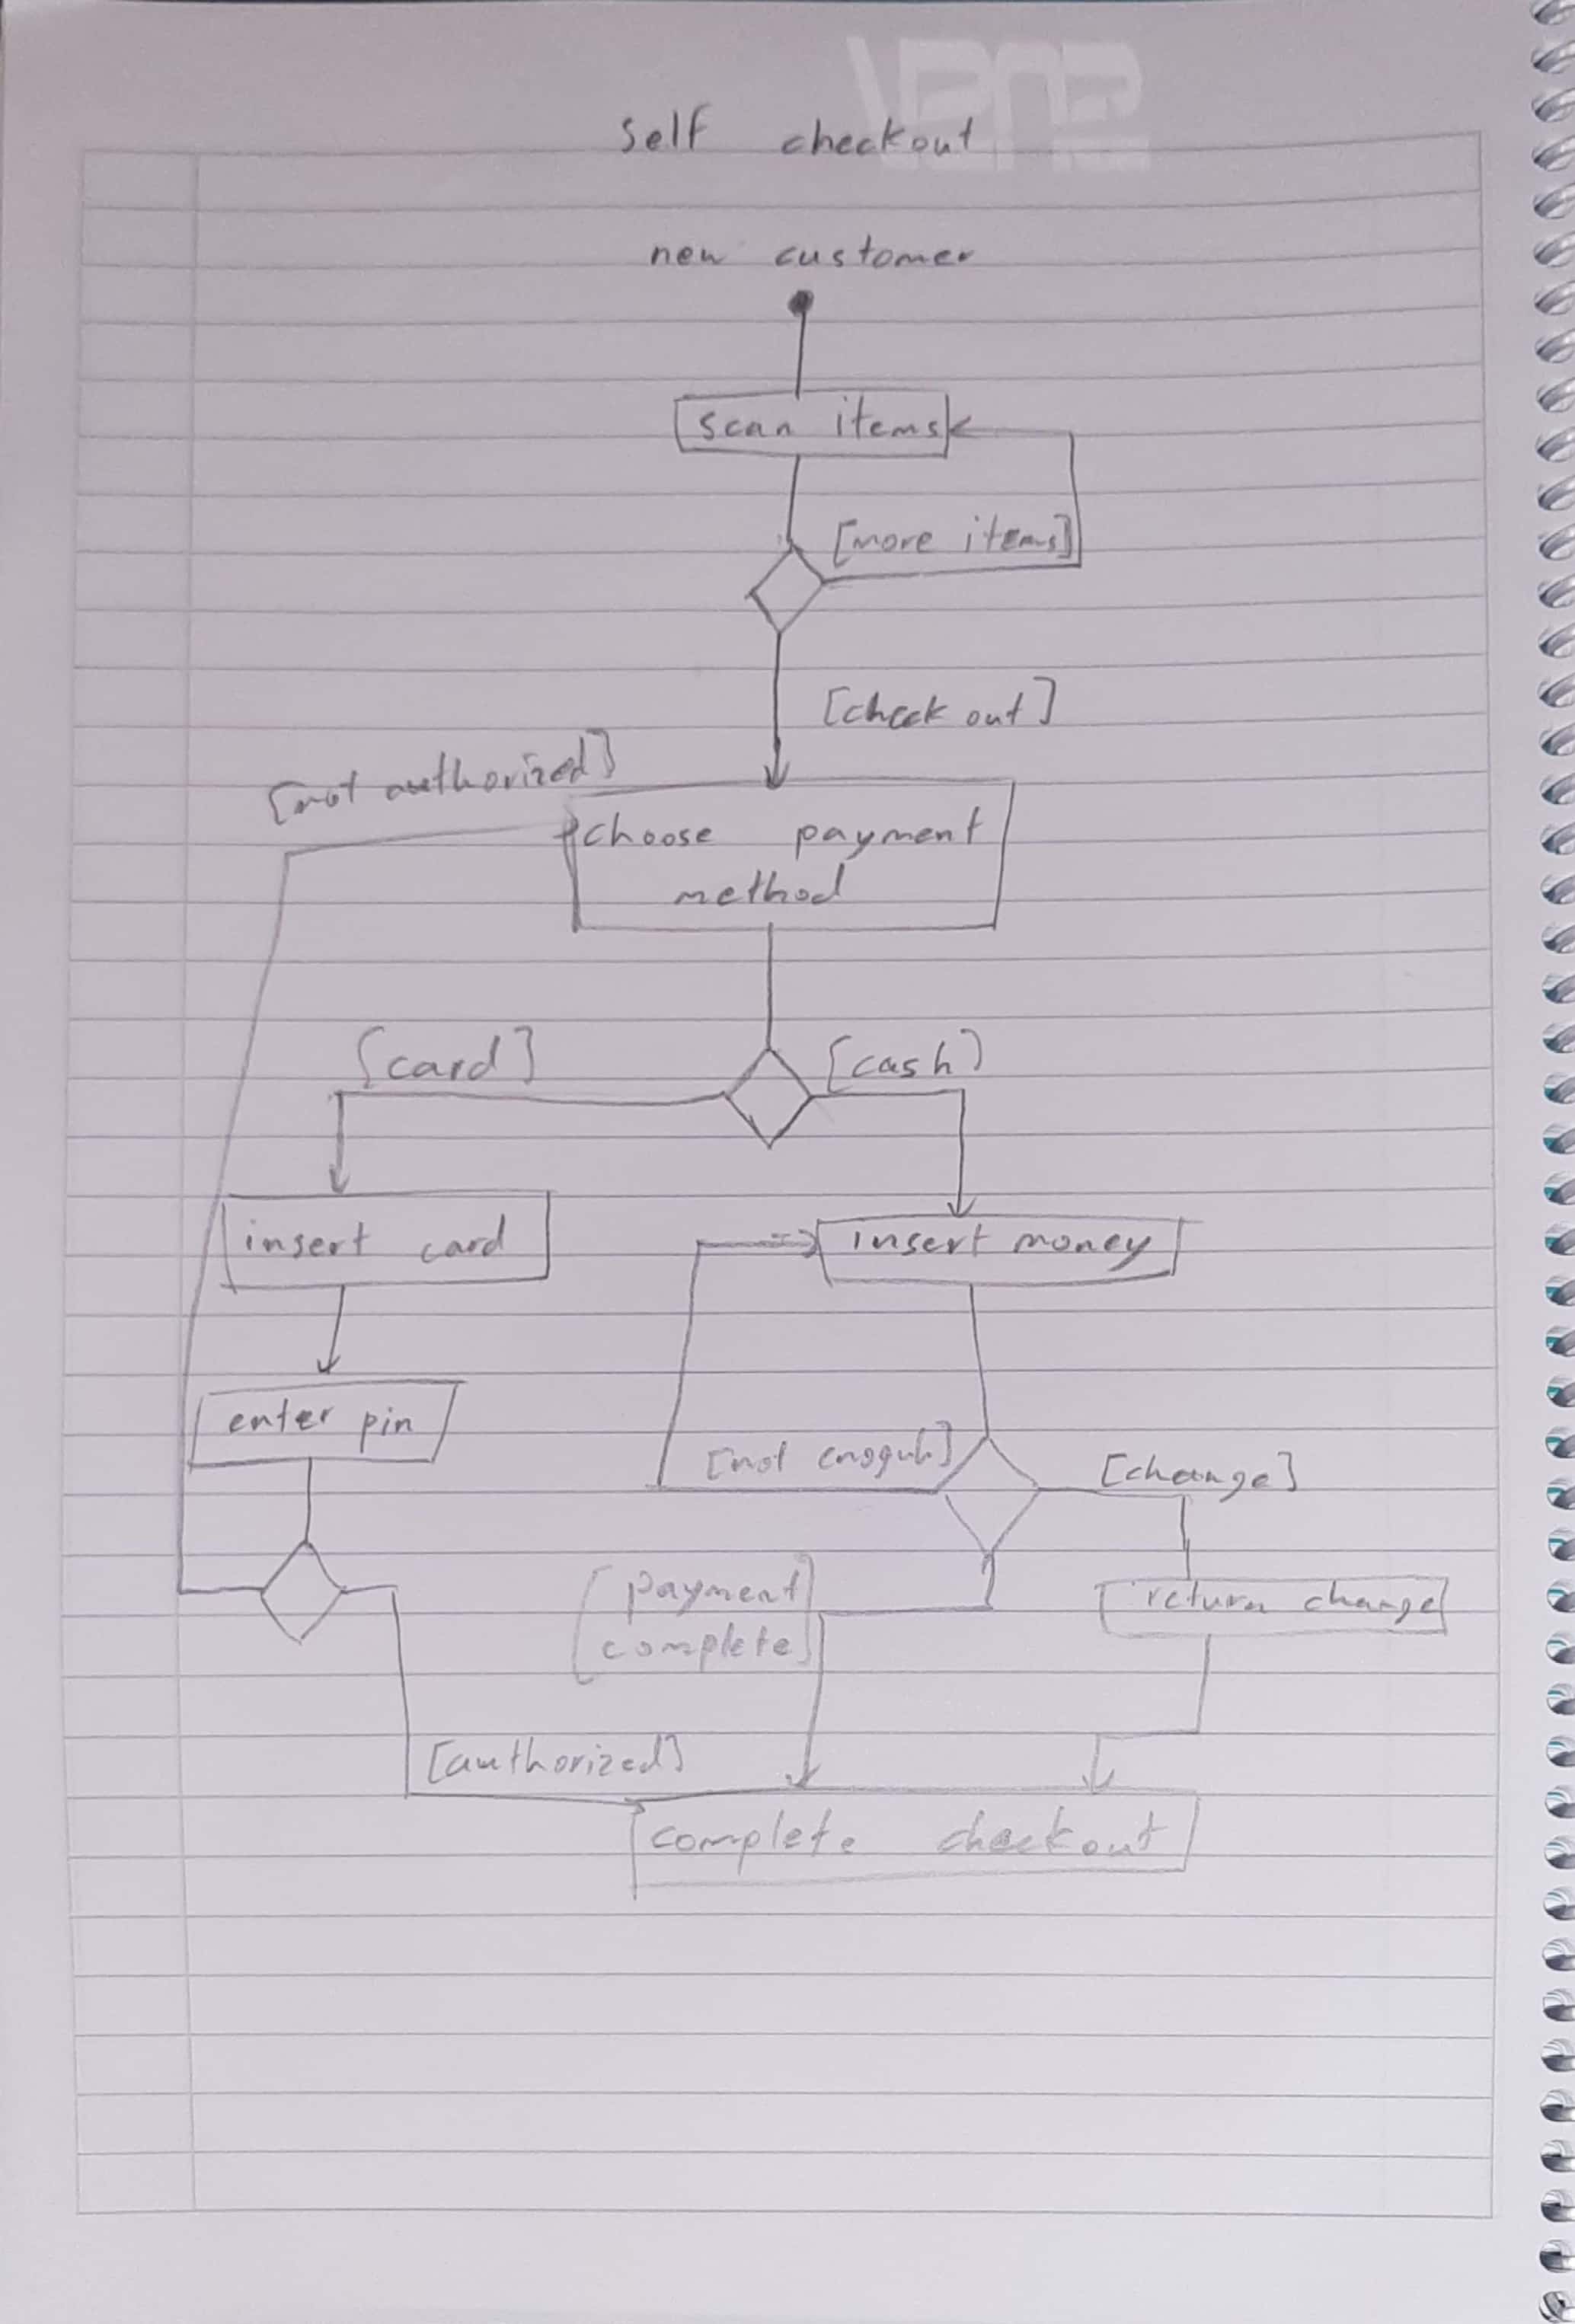 self checkout
new customer
scan items
[more items]
[check out]
[not authorized]
choose payment
method
[card]
[cash]
insert card
insert money
enter pin
[not enoguh]
[change]
[payment
complete]
return change
[authorized]
complete checkout